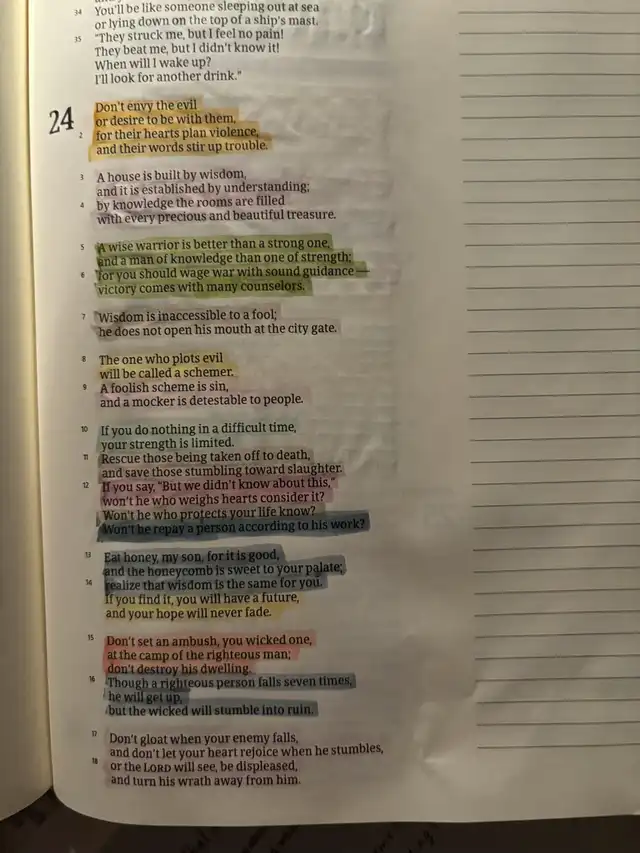 34 You'll be like someone sleeping out at sea
or lying down on the top of a ship's mast.
35 "They struck me, but I feel no pain!
They beat me, but I didn't know it!
When will I wake up?
I'll look for another drink."
24 Don't envy the evil
or desire to be with them,
2 for their hearts plan violence,
and their words stir up trouble.
3 A house is built by wisdom,
and it is established by understanding;
4 by knowledge the rooms are filled
with every precious and beautiful treasure.
5 A wise warrior is better than a strong one,
and a man of knowledge than one of strength;
6 for you should wage war with sound guidance —
victory comes with many counselors.
7 Wisdom is inaccessible to a fool;
he does not open his mouth at the city gate.
8 The one who plots evil
will be called a schemer.
9 A foolish scheme is sin,
and a mocker is detestable to people.
10 If you do nothing in a difficult time,
your strength is limited.
11 Rescue those being taken off to death,
and save those stumbling toward slaughter.
12 If you say, "But we didn't know about this,"
won't he who weighs hearts consider it?
Won't he who protects your life know?
Won't he repay a person according to his work?
13 Eat honey, my son, for it is good,
and the honeycomb is sweet to your palate;
14 realize that wisdom is the same for you.
If you find it, you will have a future,
and your hope will never fade.
15 Don't set an ambush, you wicked one,
at the camp of the righteous man;
don't destroy his dwelling.
16 Though a righteous person falls seven times,
he will get up,
but the wicked will stumble into ruin.
17 Don't gloat when your enemy falls,
and don't let your heart rejoice when he stumbles,
18 or the LORD will see, be displeased,
and turn his wrath away from him.